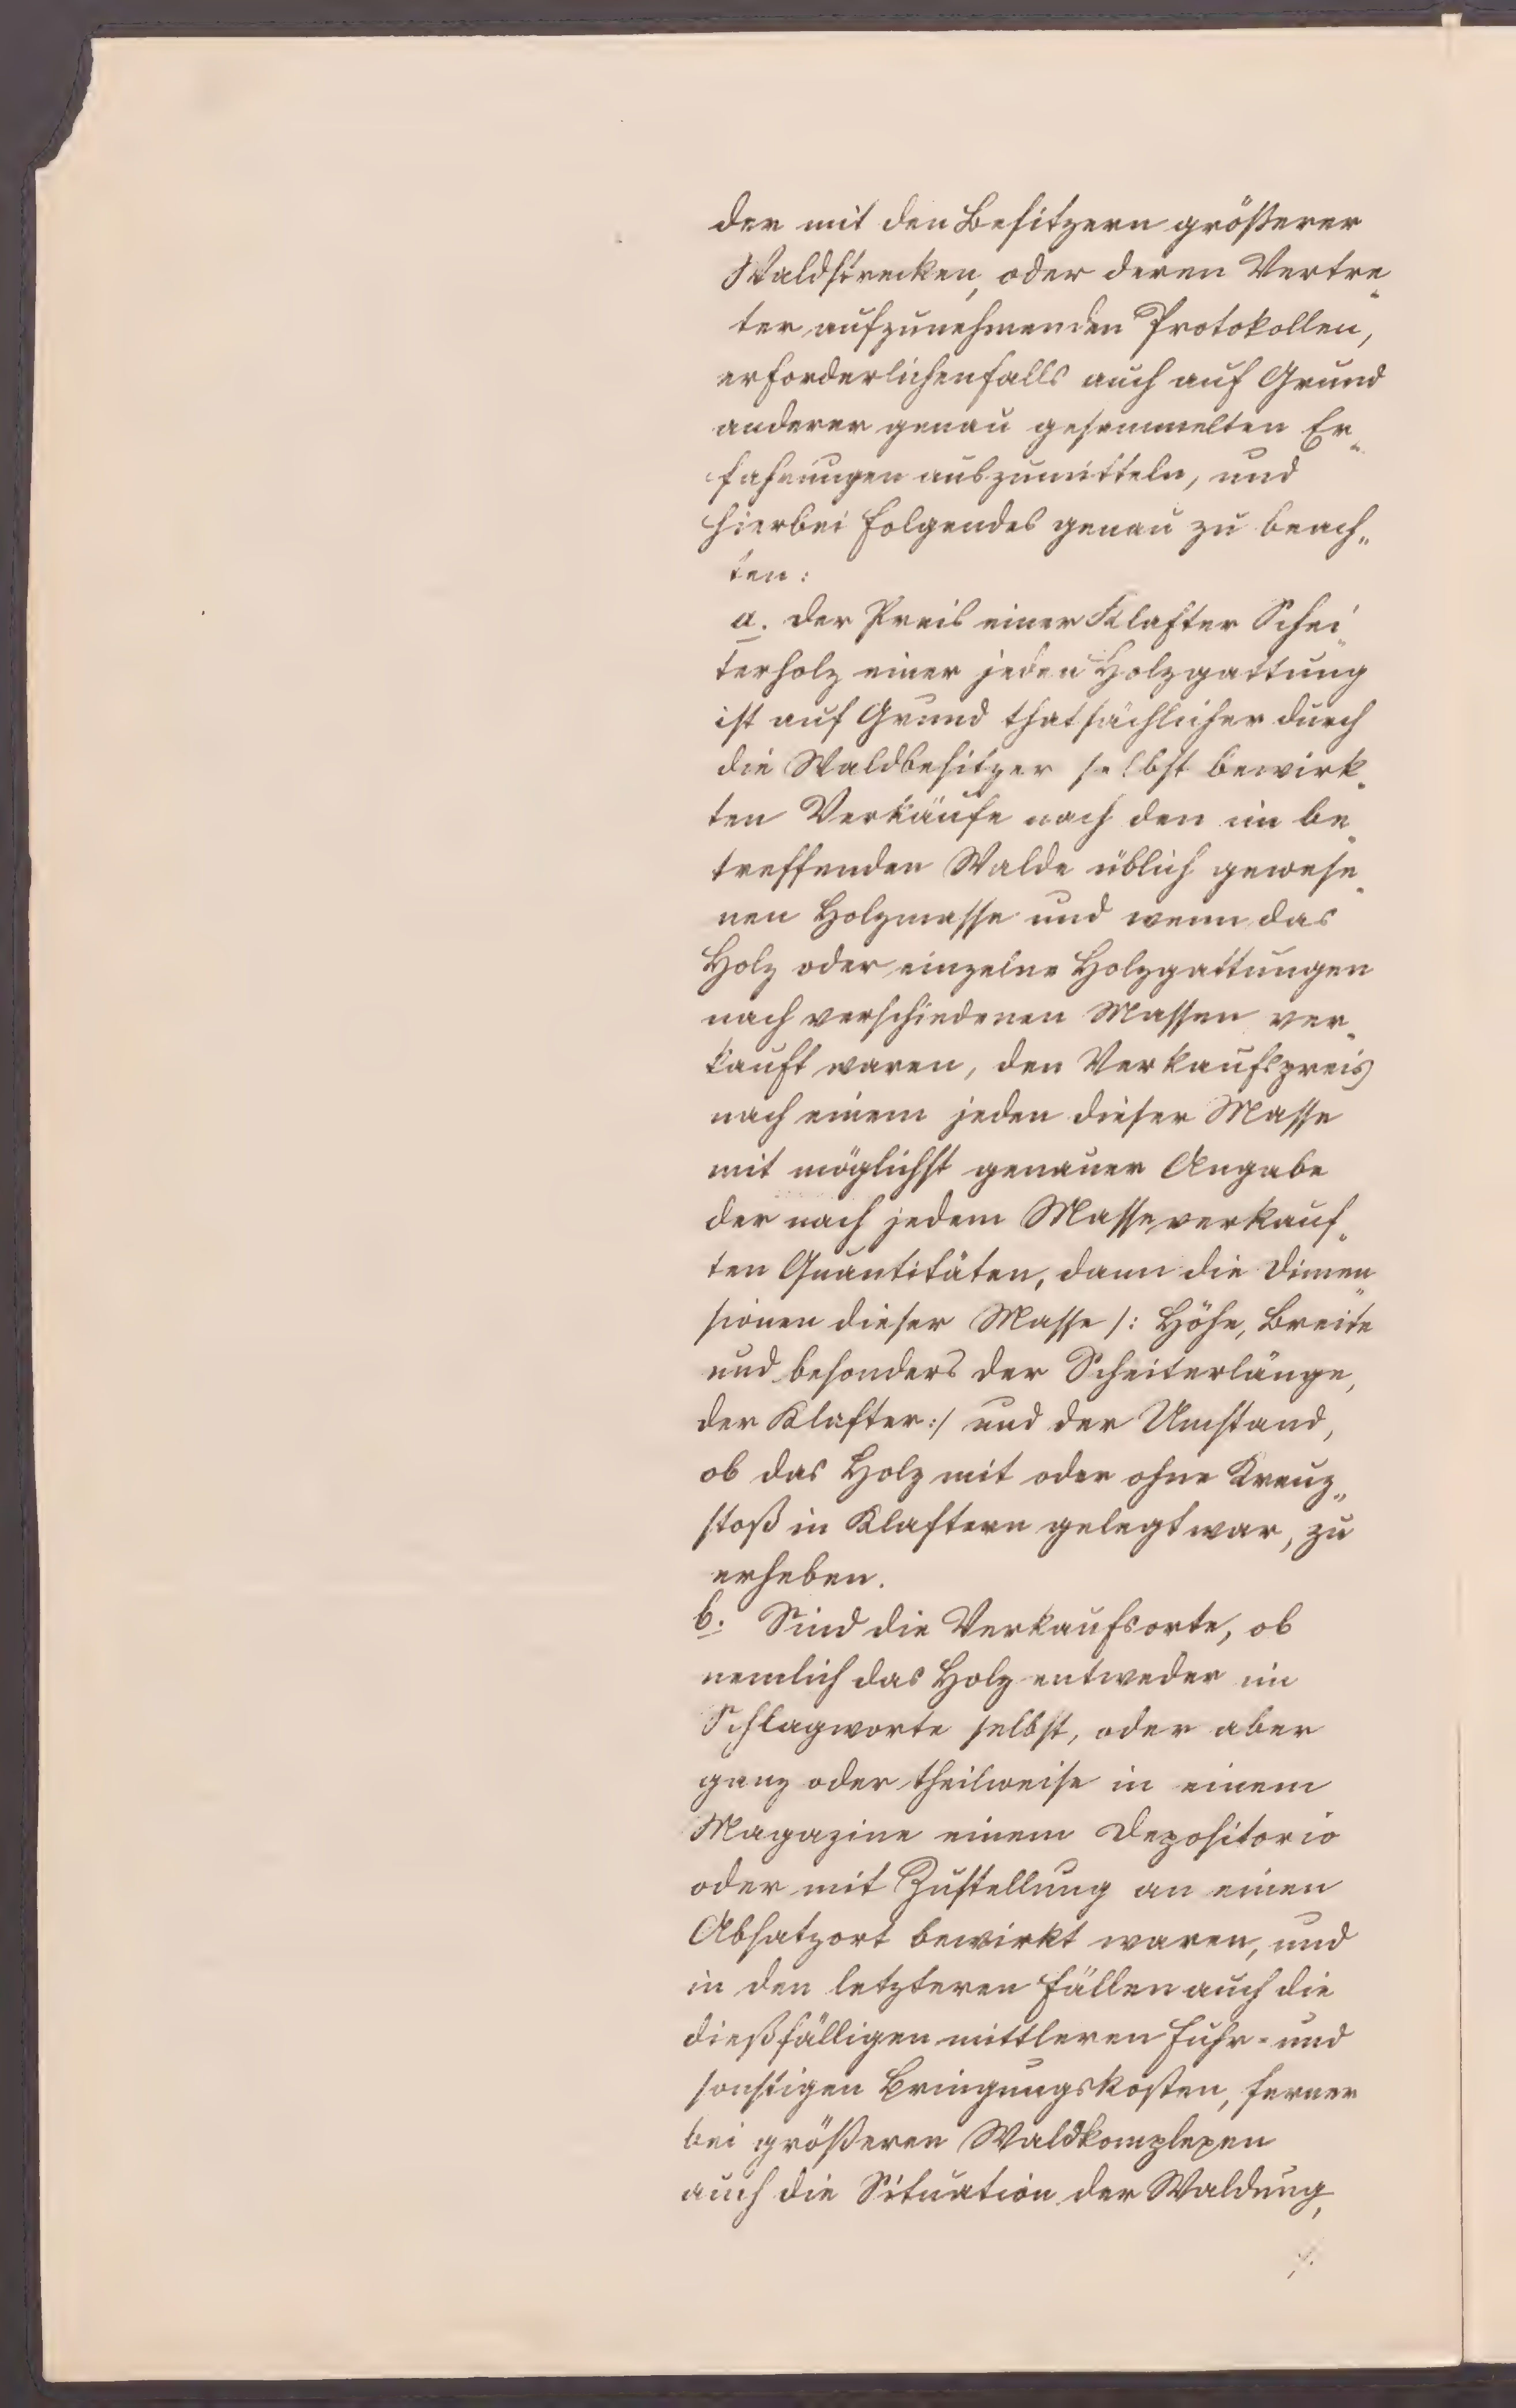 der mit den Besitzern größerer
Waldstrecken, oder deren Vertre„
ter aufzunehmenden Protokollen,
erforderlichenfalls auch auf Grund
anderer genau gesammelten Er„
fahrungen auszumitteln, und
hierbei folgendes genau zu beach„
ten:
a. der Preis einer Klafter Schei„
terholz einer jeden Holzgattung
ist auf Grund thatsächlicher durch
die Waldbesitzer selbst bewirk„
ten Verkäufe nach den im be„
treffenden Walde üblich gewese„
nen Holzmasse und wenn das
Holz oder einzelne Holzgattungen
nach verschiedenen Massen ver„
kauft waren, den Verkaufspreis
nach einem jeden dieser Masse
mit möglichst genauer Angabe
der nach jedem Masse verkauf„
ten Quantitäten, dann die Dimen„
sionen dieser Masse /: Höhe, Breite
und besonders der Scheiterlänge,
der Klafter :/ und der Umstand,
ob das Holz mit oder ohne Kreuz„
stoß in Klaftern gelegt war, zu
erheben.
b. Sind die Verkaufsorte, ob
nemlich das Holz entweder im
Schlagworte selbst, oder aber
ganz oder theilweise in einem
Magazine einem Depositorio
oder mit Zustellung an einen
Absatzort bewirkt waren, und
in den letzteren Fällen auch die
dießfälligen mittleren Fuhr- und
sonstigen Bringungskosten, ferner
bei größeren Waldkomplexen
auch die Situation der Waldung,